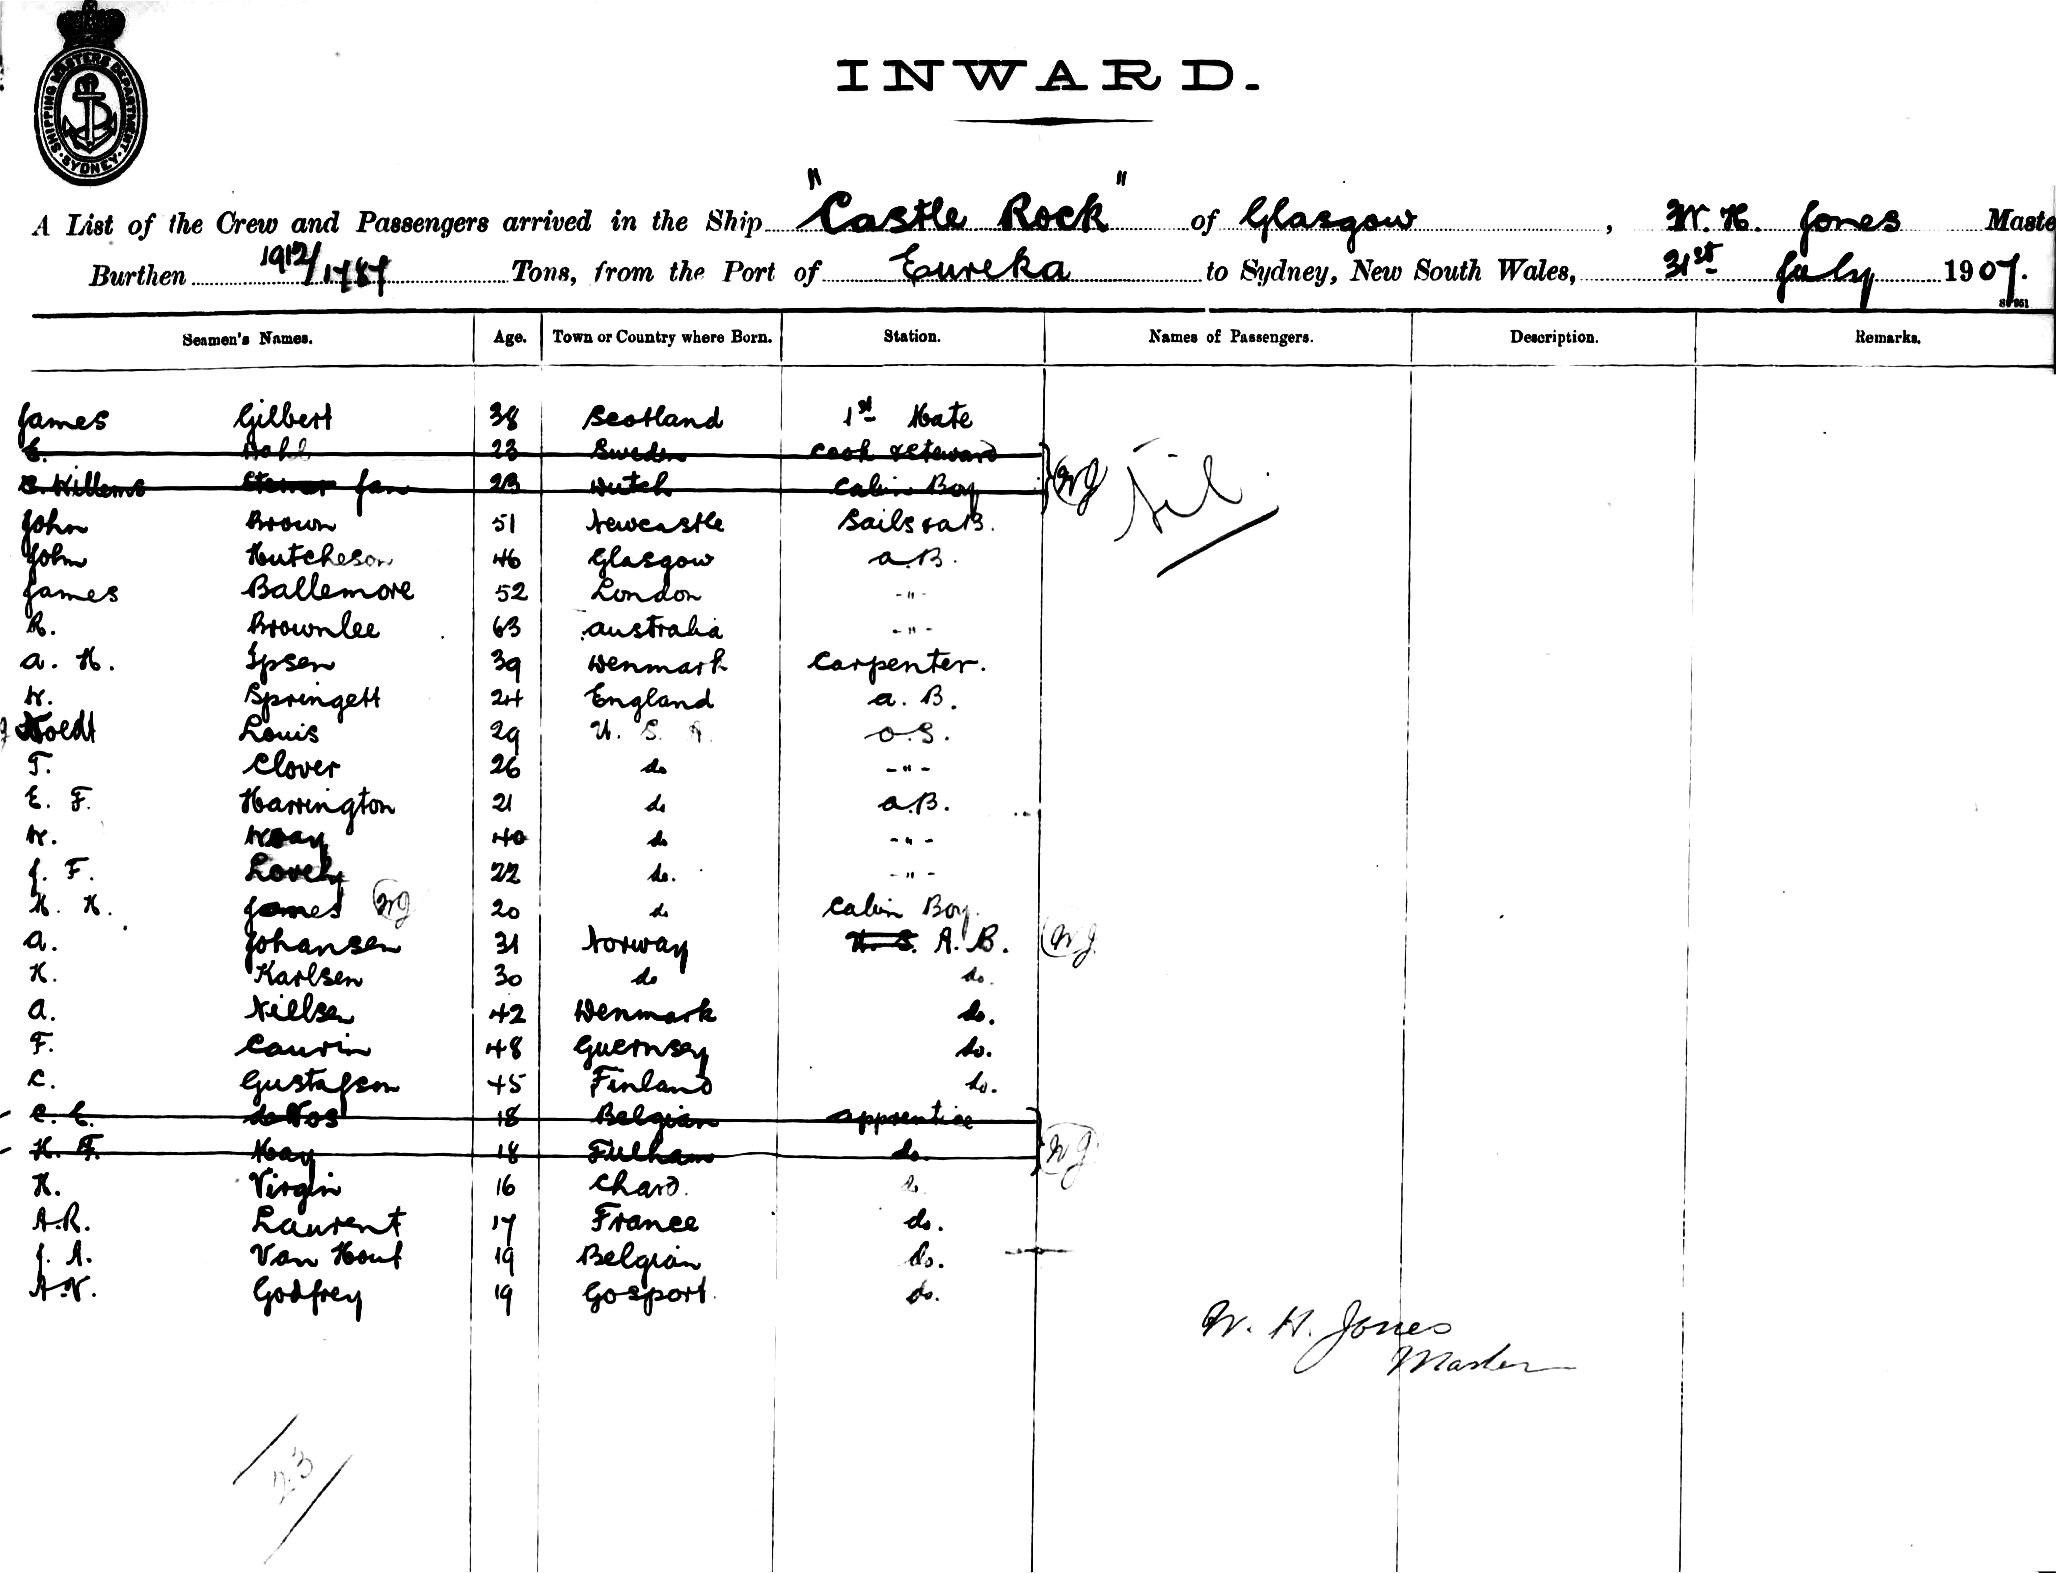 SHIPPING MASTERS DEPARTMENT
SYDNEY
INWARD.
A List of the Crew and Passengers arrived in the Ship "Castle Rock" of Glasgow, W. H. Jones Maste
Burthen 1912/1784 Tons, from the Port of Eureka to Sydney, New South Wales, 31st July 1907.
Seamen's Names. Age. Town or Country where Born. Station. Names of Passengers. Description. Remarks.
James Gilbert 38 Scotland 1st Mate
E. Dahl 23 Sweden Cook & Steward
Willems Jan 23 Dutch Cabin Boy WJ Nil
John Brown 51 Newcastle Sails & a B.
John Hutcheson 46 Glasgow a.B.
James Ballemore 52 London -"-
R. Brownlee 63 Australia -"-
a. H. Ipsen 39 Denmark Carpenter.
W. Springett 24 England a. B.
Noedt Louis 29 U. S. A. O.S.
T. Clover 26 do -"-
E. F. Harrington 21 do a.B.
W. 40 do -"-
J. F. Lovely 22 do. -"-
H. H. James WJ 20 do Cabin Boy.
a. Johansen 31 Norway A. B. WJ.
K. Karlsen 30 do do.
a. Nillsen 42 Denmark do.
F. Caurin 48 Guernsey do.
C. Gustafson 45 Finland do.
C. E. de Vos 18 Belgian apprentice
H. F. Hay 18 Fulham do. WJ
H. Virgin 16 Chard. do
A.R. Laurent 17 France do.
J. A. Van Hout 19 Belgian do.
A.V. Godfrey 19 Gosport. do.
W. H. Jones
Master
23